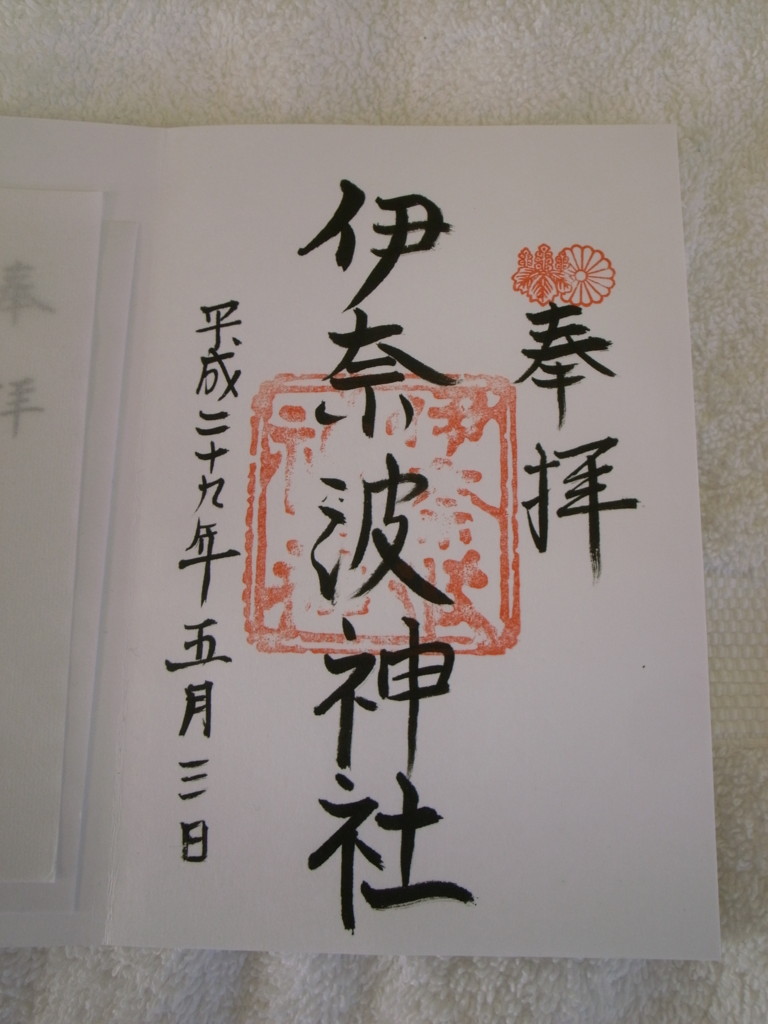 奉拝
伊奈波神社
平成二十九年五月三日
奉拝